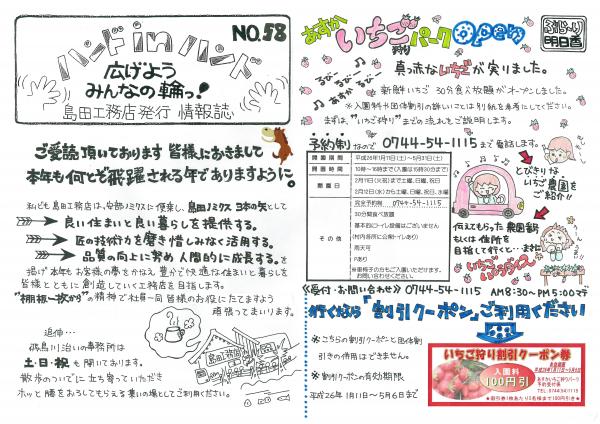 ハンド in ハンド
NO.58
広げよう
みんなの輪っ!
島田工務店発行 情報誌
ご愛読頂いております 皆様におきまして
本年も何とぞ飛躍される年でありますように。
私ども島田工務店は、安部ノミクスに便乗し、島田ノミクス 3本の矢として
良い住まいと良い暮らしを提供する。
匠の技術力を磨き惜しみなく活用する。
品質の向上に努め人間的に成長する。を
掲げ本年もお客様の夢をかなえ豊かで快適な住まいと暮らしを
皆様とともに創造していく工務店を目指します。
"棚板一枚から"の精神で社員一同皆様のお役にたてますよう
頑張ってまいります。
追伸…
川沿いの事務所は
土・日・祝も開いております。
散歩のついでに立ち寄っていただき
ホッと腰をおろしてもらえる集いの場としてご利用ください。
あすかいちご狩りパークOpen
明日香
真っ赤ないちごが実りました。
新鮮いちご 30分食べ放題がオープンしました。
※入園料や団体割引の詳しいことは別紙を参考にしてください。
まずは、"いちご狩り"までの流れをご説明します。
予約制なので 0744-54-1115まで電話します。
開園期間 平成26年1月11日(土)~5月31日(土)
開園日 10時~16時まで(入園は15時30分まで)
2月11日(火祝)まで土曜、日曜、祝日
2月12日(水)から土曜、日曜、祝日、水曜
その他 完全予約制 0744-54-1115
30分間食べ放題
基本的にトイレ設備はございません
(村内各所に公衆トイレあり)
雨天可
Pあり
※車椅子の方もご入園いただけます。
お問い合わせください。
とびきりな
いちご農園を
ご紹介!!
何えてもらった農園都
もしくは住所を
目指して行くと…まさに
いちごパラダイス
《受付・お問い合わせ》 0744-54-1115 AM8:30~PM5:00まで
行くなら「割引クーポン」ご利用ください
※こちらの割引クーポンと団体割
引きの併用はできません。
※割引クーポンの有効期限
平成26年1月11日~5月6日まで
いちご狩り割引クーポン券
入園料
100円引
あすかいちご狩りパーク
予約受付係
TEL:0744(54)1115